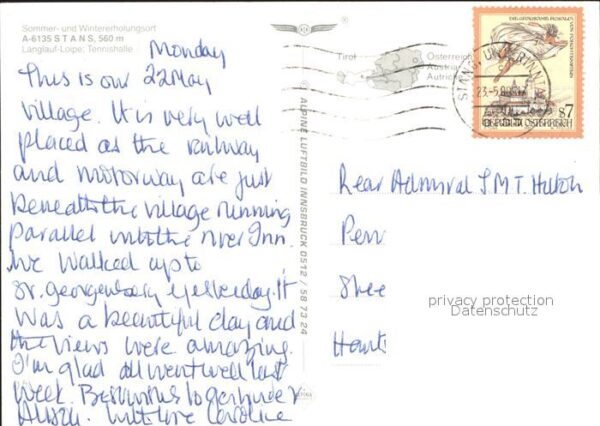 Sommer- und Wintererholungsort
A-6135 STANS, 560 m
Langlauf-Loipe; Tennishalle
Monday
22 May
This is our
village. It is very well
placed as the railway
and motorway are just
beneath the village running
parallel with the river Inn.
We walked up to
St. Georgenberg yesterday. It
was a beautiful day and
the views were amazing.
I'm glad all went well last
week. Best wishes to Gertrude &
With love Caroline
ALPINE LUFTBILD INNSBRUCK 0512 / 58 73 24
Tirol
Österreich
Austria
Autriche
STANS UNTERINNTAL
23.-5.
S7
REPUBLIK ÖSTERREICH
Rear Admiral J.M.T. Hilton
Pen
Shee
Hants
privacy protection
Datenschutz